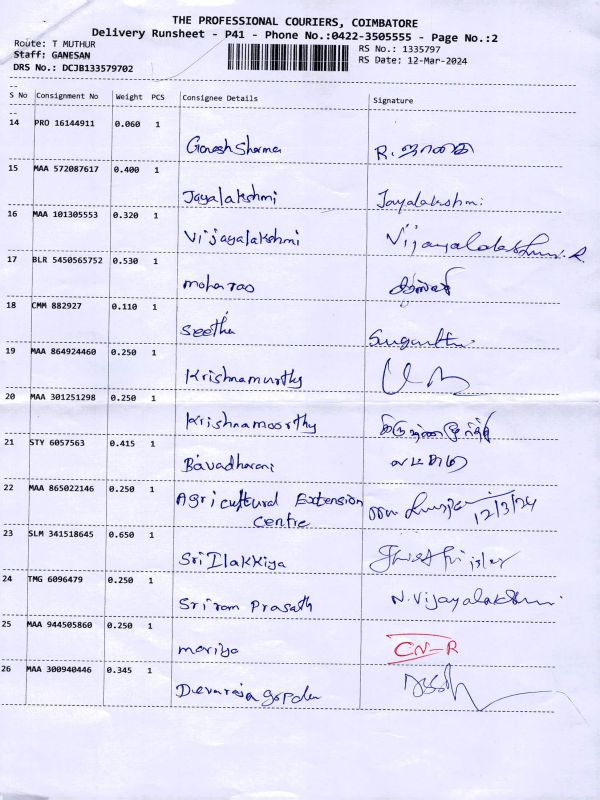 THE PROFESSIONAL COURIERS, COIMBATORE
Delivery Runsheet - P41 - Phone No.:0422-3505555 - Page No.:2
Route: T MUTHUR
Staff: GANESAN
DRS No.: DCJB133579702
RS No.: 1335797
RS Date: 12-Mar-2024
S No Consignment No Weight PCS Consignee Details Signature
14 PRO 16144911 0.060 1
Ganesh Sharma R.
15 MAA 572087617 0.400 1
Jayalakshmi Jayalakshmi
16 MAA 101305553 0.320 1
Vijayalakshmi Vijayalakshmi.R
17 BLR 5450565752 0.530 1
mohan rao
18 CMM 882927 0.110 1
Seetha
19 MAA 864924460 0.250 1
Krishnamurthy
20 MAA 301251298 0.250 1
Krishnamoorthy கிருஷ்ணமூர்த்தி
21 STY 6057563 0.415 1
Bavadharani
22 MAA 865022146 0.250 1
Agricultural Extension
Centre 12/3/24
23 SLM 341518645 0.650 1
Sri Ilakkiya
24 TMG 6096479 0.250 1
Sriram Prasath N.Vijayalakshmi
25 MAA 944505860 0.250 1
mariya CN-R
26 MAA 300940446 0.345 1
Devarajagopalan